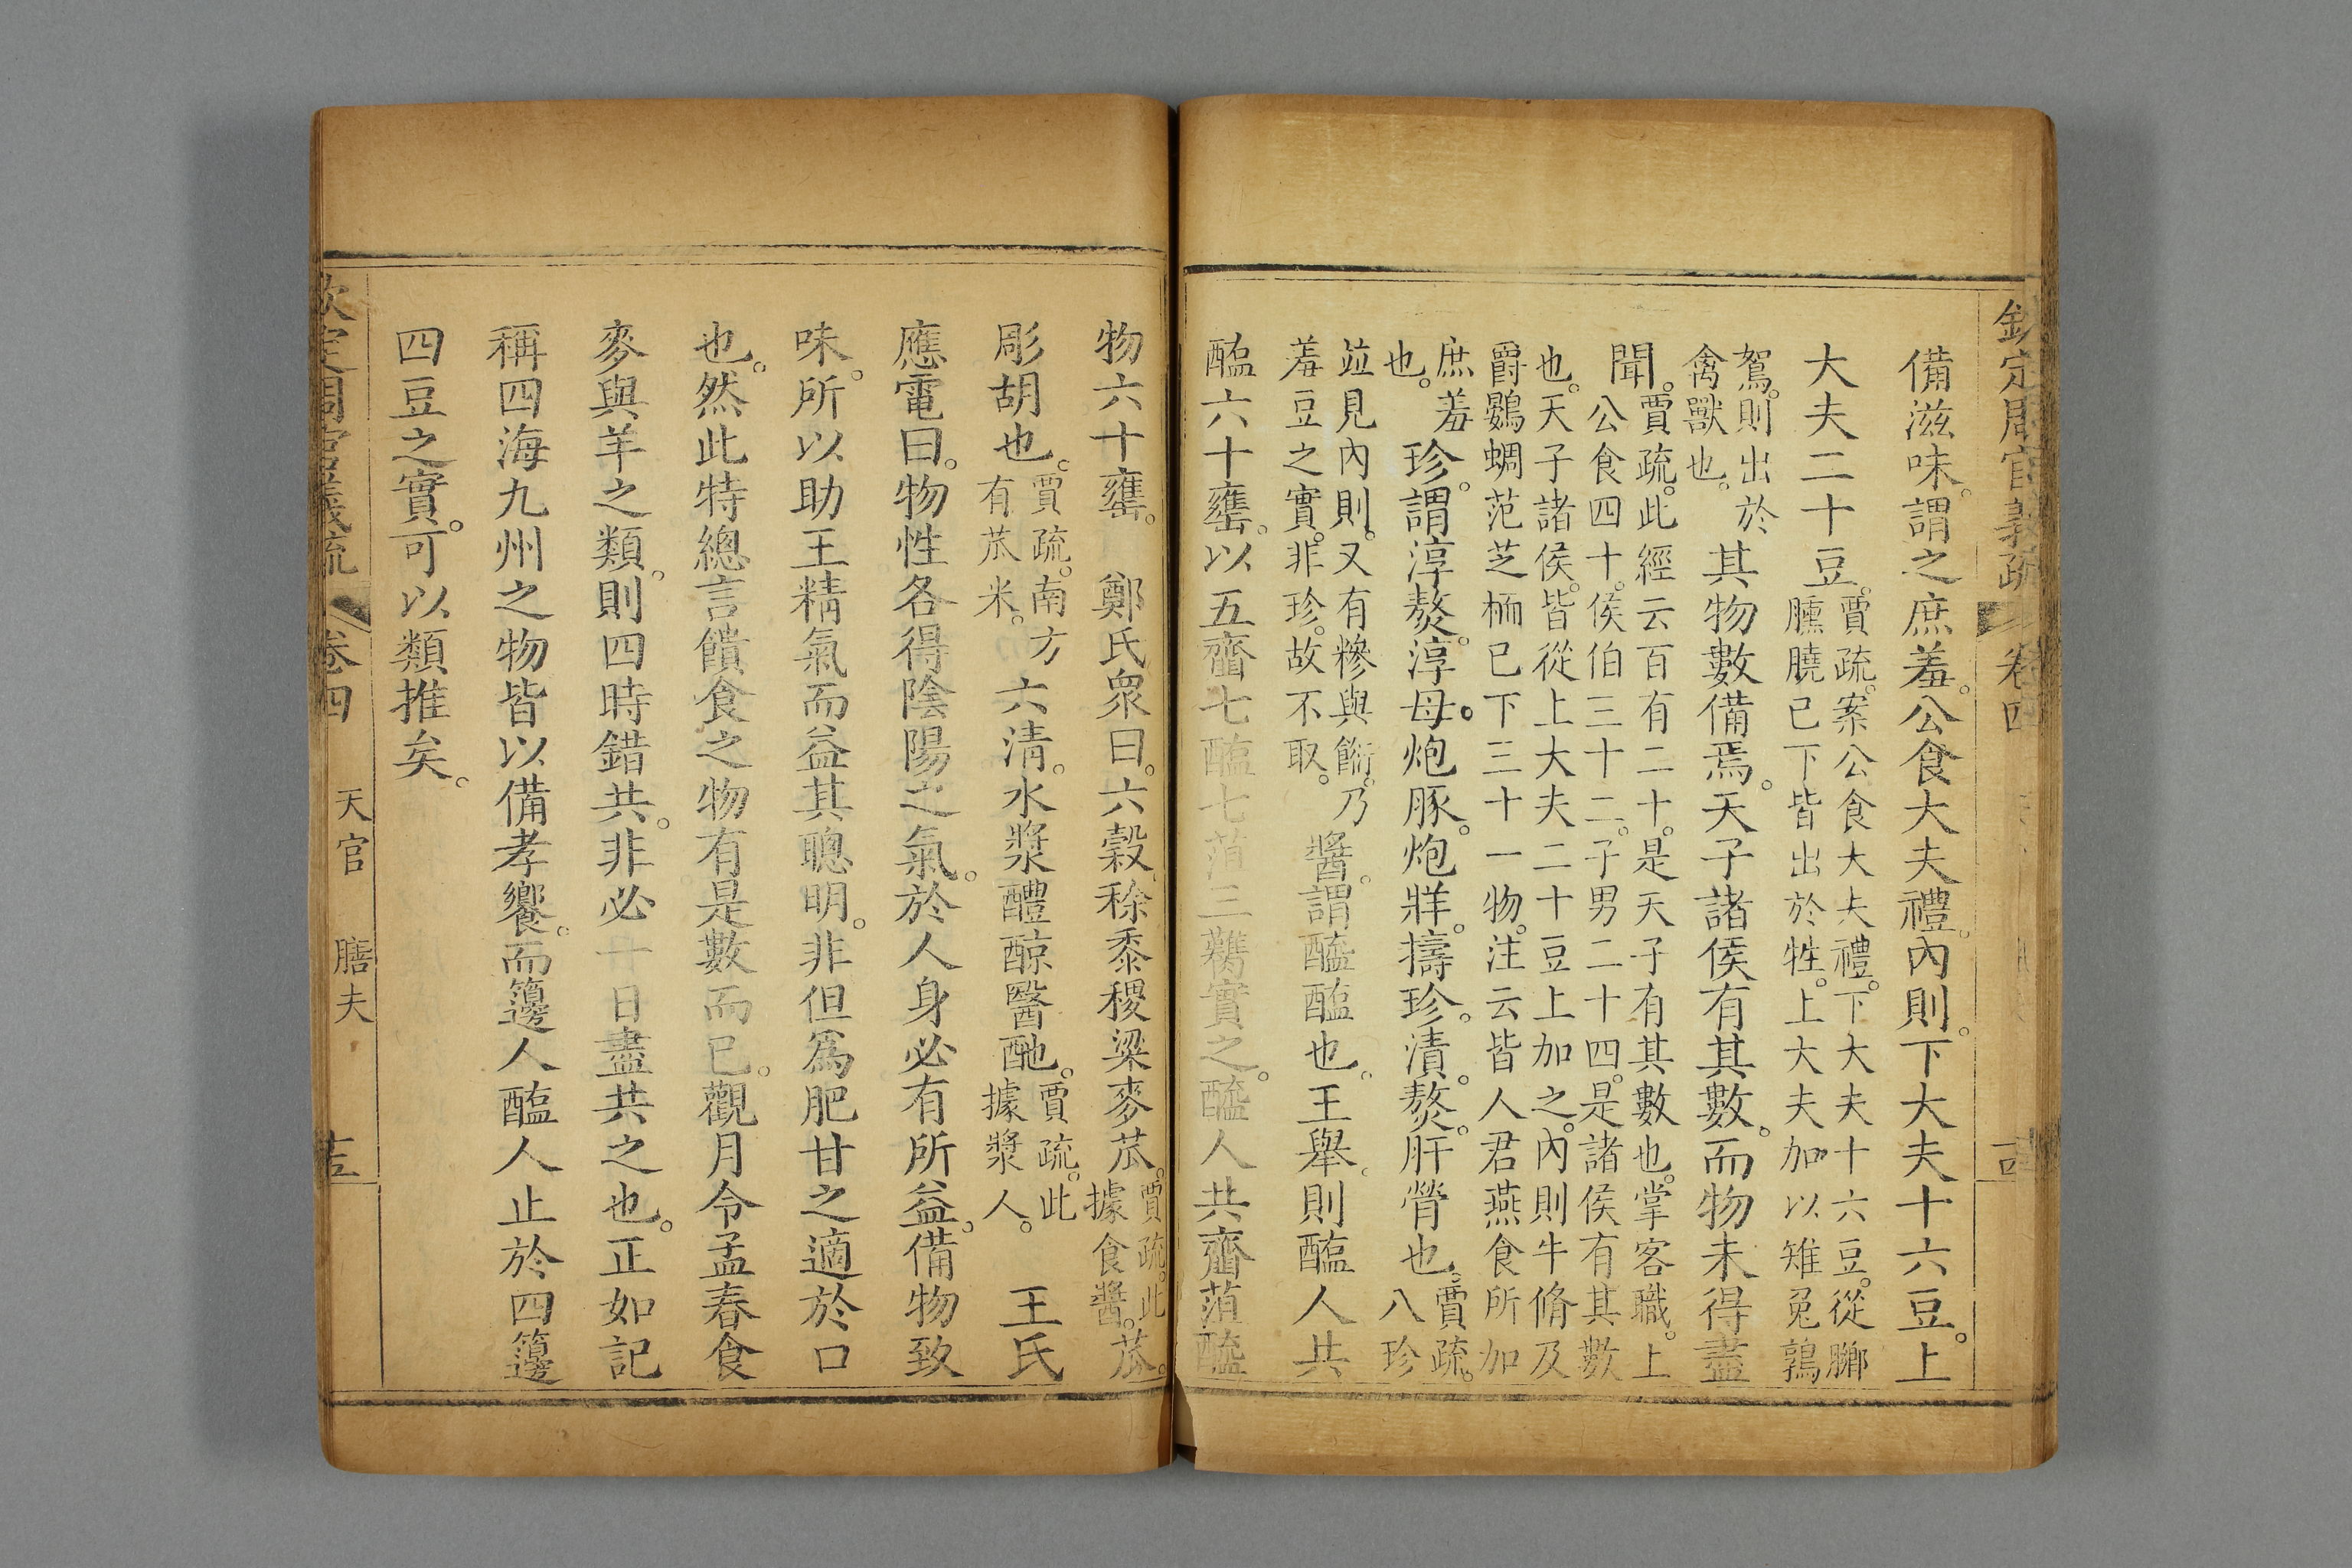 欽定周官義疏 卷四
備滋味。謂之庶羞。公食大夫禮。內則。下大夫十六豆。上
大夫二十豆。賈疏。案公食大夫禮。下大夫十六豆。從膷
臐膮已下皆出於牲。上大夫加以雉兔鶉
鴽。則出於
禽獸也。其物數備焉。天子諸侯有其數。而物未得盡
聞。賈疏。此經云百有二十。是天子有其數也。掌客職。上
公食四十。侯伯三十二。子男二十四。是諸侯有其數
也。天子諸侯。皆從上大夫二十豆上加之。內則牛脩及
爵鷃蜩范芝栭已下三十一物。注云皆人君燕食所加
庶羞
也。珍。謂淳熬。淳母。炮豚。炮牂。擣珍。漬。熬。肝膋也。賈疏。八珍
並見內則。又有糝與餰。乃
羞豆之實。非珍。故不取。醬。謂醯醢也。王舉。則醢人共
醢六十罋。以五齏七醢七菹三臡實之。醯人共齊菹醯
物六十罋。鄭氏衆曰。六穀。稌黍稷粱麥苽。賈疏。此據食醫。苽。
彫胡也。賈疏。南方有苽米。六清。水漿醴䣼醫酏。賈疏。此據漿人。王氏
應電曰。物性各得陰陽之氣。於人身必有所益。備物致
味。所以助王精氣而益其聰明。非但爲肥甘之適於口
也。然此特總言饋食之物有是數而已。觀月令孟春食
麥與羊之類。則四時錯共。非必一日盡共之也。正如記
稱四海九州之物皆以備孝饗。而籩人醢人止於四籩
四豆之實。可以類推矣。
欽定周官義疏 卷四 天官 膳夫 十五